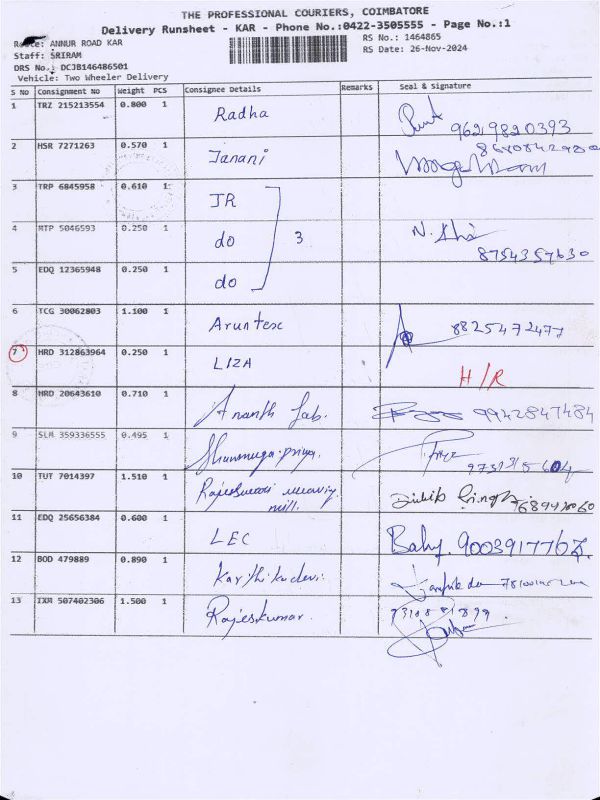 THE PROFESSIONAL COURIERS, COIMBATORE
Delivery Runsheet - KAR - Phone No.:0422-3505555 - Page No.:1
Route: ANNUR ROAD KAR
RS No.: 1464865
Staff: SRIRAM
RS Date: 26-Nov-2024
DRS No.: DCJB146486501
Vehicle: Two Wheeler Delivery
S No Consignment No Weight PCS Consignee Details Remarks Seal & Signature
1 TRZ 215213554 0.800 1 Radha 9629820393
2 HSR 7271263 0.570 1 Janani
3 TRP 6845958 0.610 1 JR
4 MTP 5046593 0.250 1 do 3 8754357630
5 EDQ 12365948 0.250 1 do
6 TCG 30062803 1.100 1 Aruntex 8825472477
7 HRD 312863964 0.250 1 LIZA H/R
8 HRD 20643610 0.710 1 Ananth Lab. 9942847484
9 SLM 359336555 0.495 1 Shanmuga priya.
10 TUT 7014397 1.510 1 Rajeswari weaving mill.
11 EDQ 25656384 0.600 1 LEC Baby.
12 BOD 479889 0.890 1 Karthikadevi
13 IXM 507402306 1.500 1 Rajeskumar.